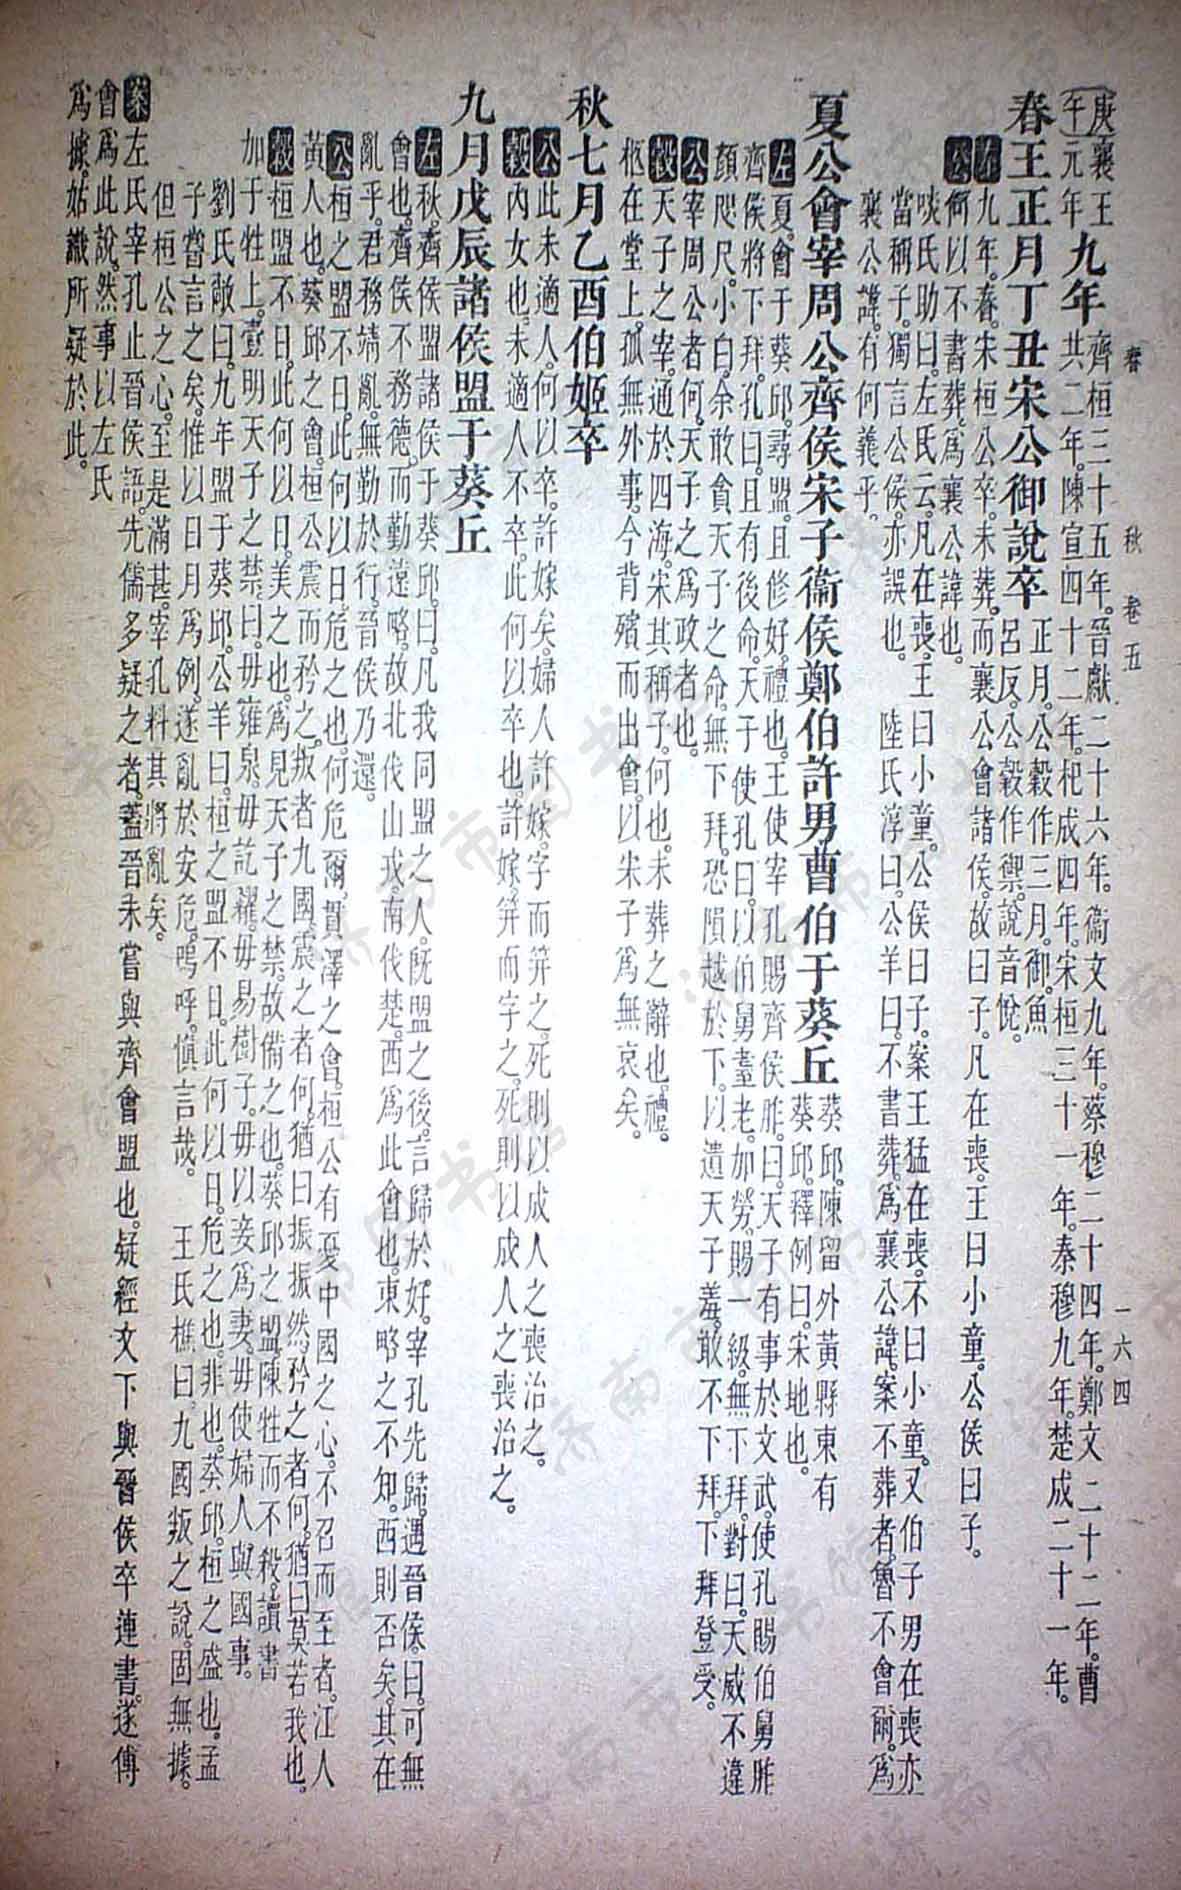 春秋 卷五 一六四
庚午 襄王元年 九年 齊桓三十五年。晉獻二十六年。衞文九年。蔡穆二十四年。鄭文二十二年。曹
共二年。陳宣四十二年。杞成四年。宋桓三十一年。秦穆九年。楚成二十一年。
春王正月丁丑宋公御說卒 正月。公穀作三月。御。魚
呂反。公穀作禦。說音悅。
左 九年。春。宋桓公卒。未葬。而襄公會諸侯。故曰子。凡在喪。王曰小童。公侯曰子。
公 何以不書葬。爲襄公諱也。
啖氏助曰。左氏云。凡在喪。王曰小童。公侯曰子。案王猛在喪。不曰小童。又伯子男在喪。亦
當稱子。獨言公侯。亦誤也。 陸氏淳曰。公羊曰。不書葬。爲襄公諱。案不葬者。魯不會爾。爲
襄公諱。有何義乎。
夏公會宰周公齊侯宋子衞侯鄭伯許男曹伯于葵丘 葵邱。陳留外黃縣東有
葵邱。釋例曰。宋地也。
左 夏。會于葵邱。尋盟。且修好。禮也。王使宰孔賜齊侯胙。曰。天子有事於文武。使孔賜伯舅胙
齊侯將下拜。孔曰。且有後命。天子使孔曰。以伯舅耋老。加勞。賜一級。無下拜。對曰。天威不違
顏咫尺。小白。余敢貪天子之命。無下拜。恐隕越於下。以遺天子羞。敢不下拜。下拜登受。
公 宰周公者何。天子之爲政者也。
穀 天子之宰。通於四海。宋其稱子。何也。未葬之辭也。禮。
柩在堂上。孤無外事。今背殯而出會。以宋子爲無哀矣。
秋七月乙酉伯姬卒
公 此未適人。何以卒。許嫁矣。婦人許嫁。字而笄之。死則以成人之喪治之。
穀 內女也。未適人不卒。此何以卒也。許嫁。笄而字之。死則以成人之喪治之。
九月戊辰諸侯盟于葵丘
左 秋。齊侯盟諸侯于葵邱。曰。凡我同盟之人。旣盟之後。言歸於好。宰孔先歸。遇晉侯。曰。可無
會也。齊侯不務德。而勤遠略。故北伐山戎。南伐楚。西爲此會也。東略之不知。西則否矣。其在
亂乎。君務靖亂。無勤於行。晉侯乃還。
公 桓之盟不日。此何以日。危之也。何危爾。貫澤之會。桓公有憂中國之心。不召而至者。江人
黃人也。葵邱之會。桓公震而矜之。叛者九國。震之者何。猶曰振振然。矜之者何。猶曰莫若我也。
穀 桓盟不日。此何以日。美之也。爲見天子之禁。故備之也。葵邱之盟。陳牲而不殺。讀書
加于牲上。壹明天子之禁。曰。毋雍泉。毋訖糴。毋易樹子。毋以妾爲妻。毋使婦人與國事。
劉氏敞曰。九年盟于葵邱。公羊曰。桓之盟不日。此何以日。危之也。非也。葵邱。桓之盛也。孟
子嘗言之矣。惟以日月爲例。遂亂於安危。嗚呼。愼言哉。 王氏樵曰。九國叛之說。固無據。
但桓公之心。至是滿甚。宰孔料其將亂矣。
案 左氏宰孔止晉侯語。先儒多疑之者。蓋晉未嘗與齊會盟也。疑經文下與晉侯卒連書。遂傅
會爲此說。然事以左氏
爲據。姑識所疑於此。